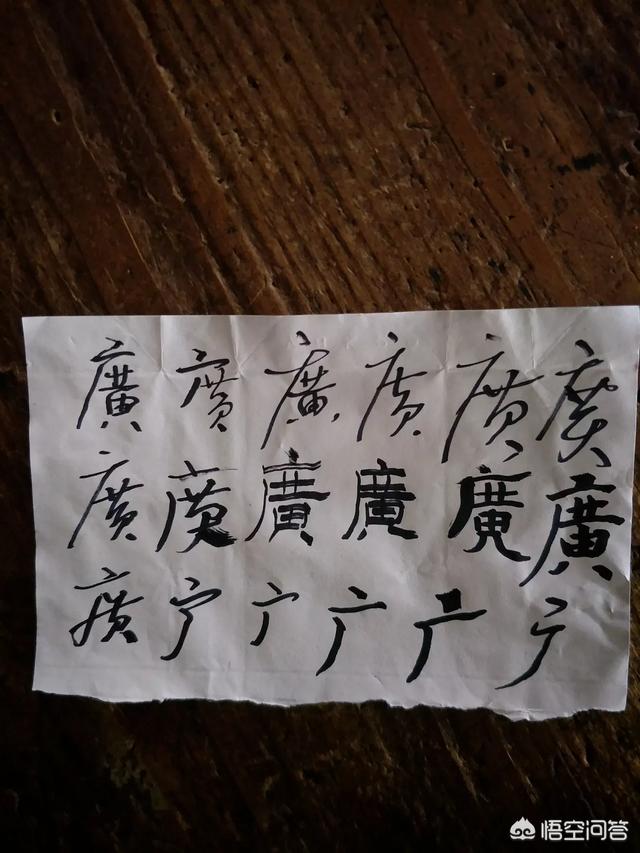 廣 廣 廣 廣 廣 廣
廣 廣 廣 廣 廣 廣
廣 广 广 广 广 广
悟空问答